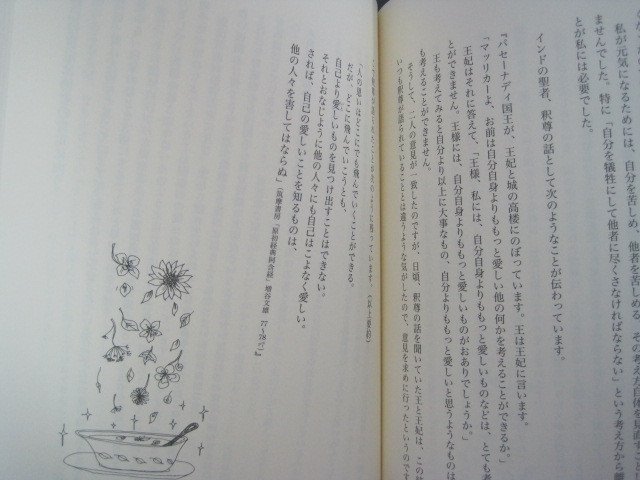 私が元気になるためには、自分を苦しめ、他者を苦しめる、その考え方自体を見直すこと
ませんでした。特に「自分を犠牲にして他者に尽くさなければならない」という考え方から離
とが私には必要でした。
インドの聖者、釈尊の話として次のようなことが伝わっています。
『パセーナディ国王が、王妃と城の高楼にのぼっています。王は王妃に言います。
「マッリカーよ、お前は自分自身よりももっと愛しい他の何かを考えることができるか。」
王妃はそれに答えて、「王様、私には、自分自身よりももっと愛しいものなどは、とても考
とができません。王様には、自分自身よりももっと愛しいものがおありでしょうか。」
王も考えてみると自分より以上に大事なもの、自分よりももっと愛しいと思うようなものは
も考えることができません。
そうして、二人の意見が一致したのですが、日頃、釈尊の話を聞いていた王と王妃は、この
いつも釈尊が語られていることとは違うような気がしたので、意見を求めに行ったというのです
「人の思いはどこにでも飛んでいくことができる。
だが、どこに飛んでいこうとも、
自己より愛しいものを見つけ出すことはできない。
それとおなじように他の人々にも自己はこよなく愛しい。
されば、自己の愛しいことを知るものは、
他の人々を害してはならぬ」(筑摩書房「原初経典阿含経」増谷文雄 77-78頁)』